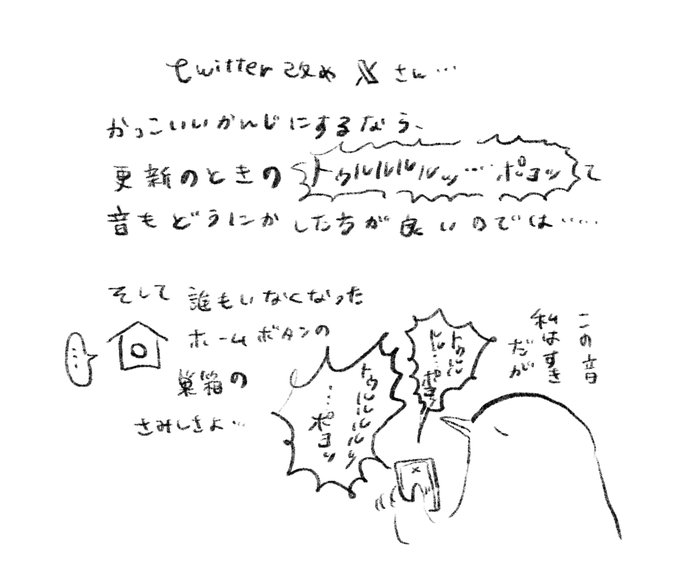 twitter 改め X さん…
かっこいいかんじにするなら、
更新のときの トゥルルルルッ…ポヨッ て
音もどうにかした方が良いのでは……
そして 誰もいなくなった
ホームボタンの
巣箱の
さみしさよ…
…
この音
私はすき
だが
トゥルル
ルル…ポヨッ
トゥルルルルッ
…ポヨッ
X